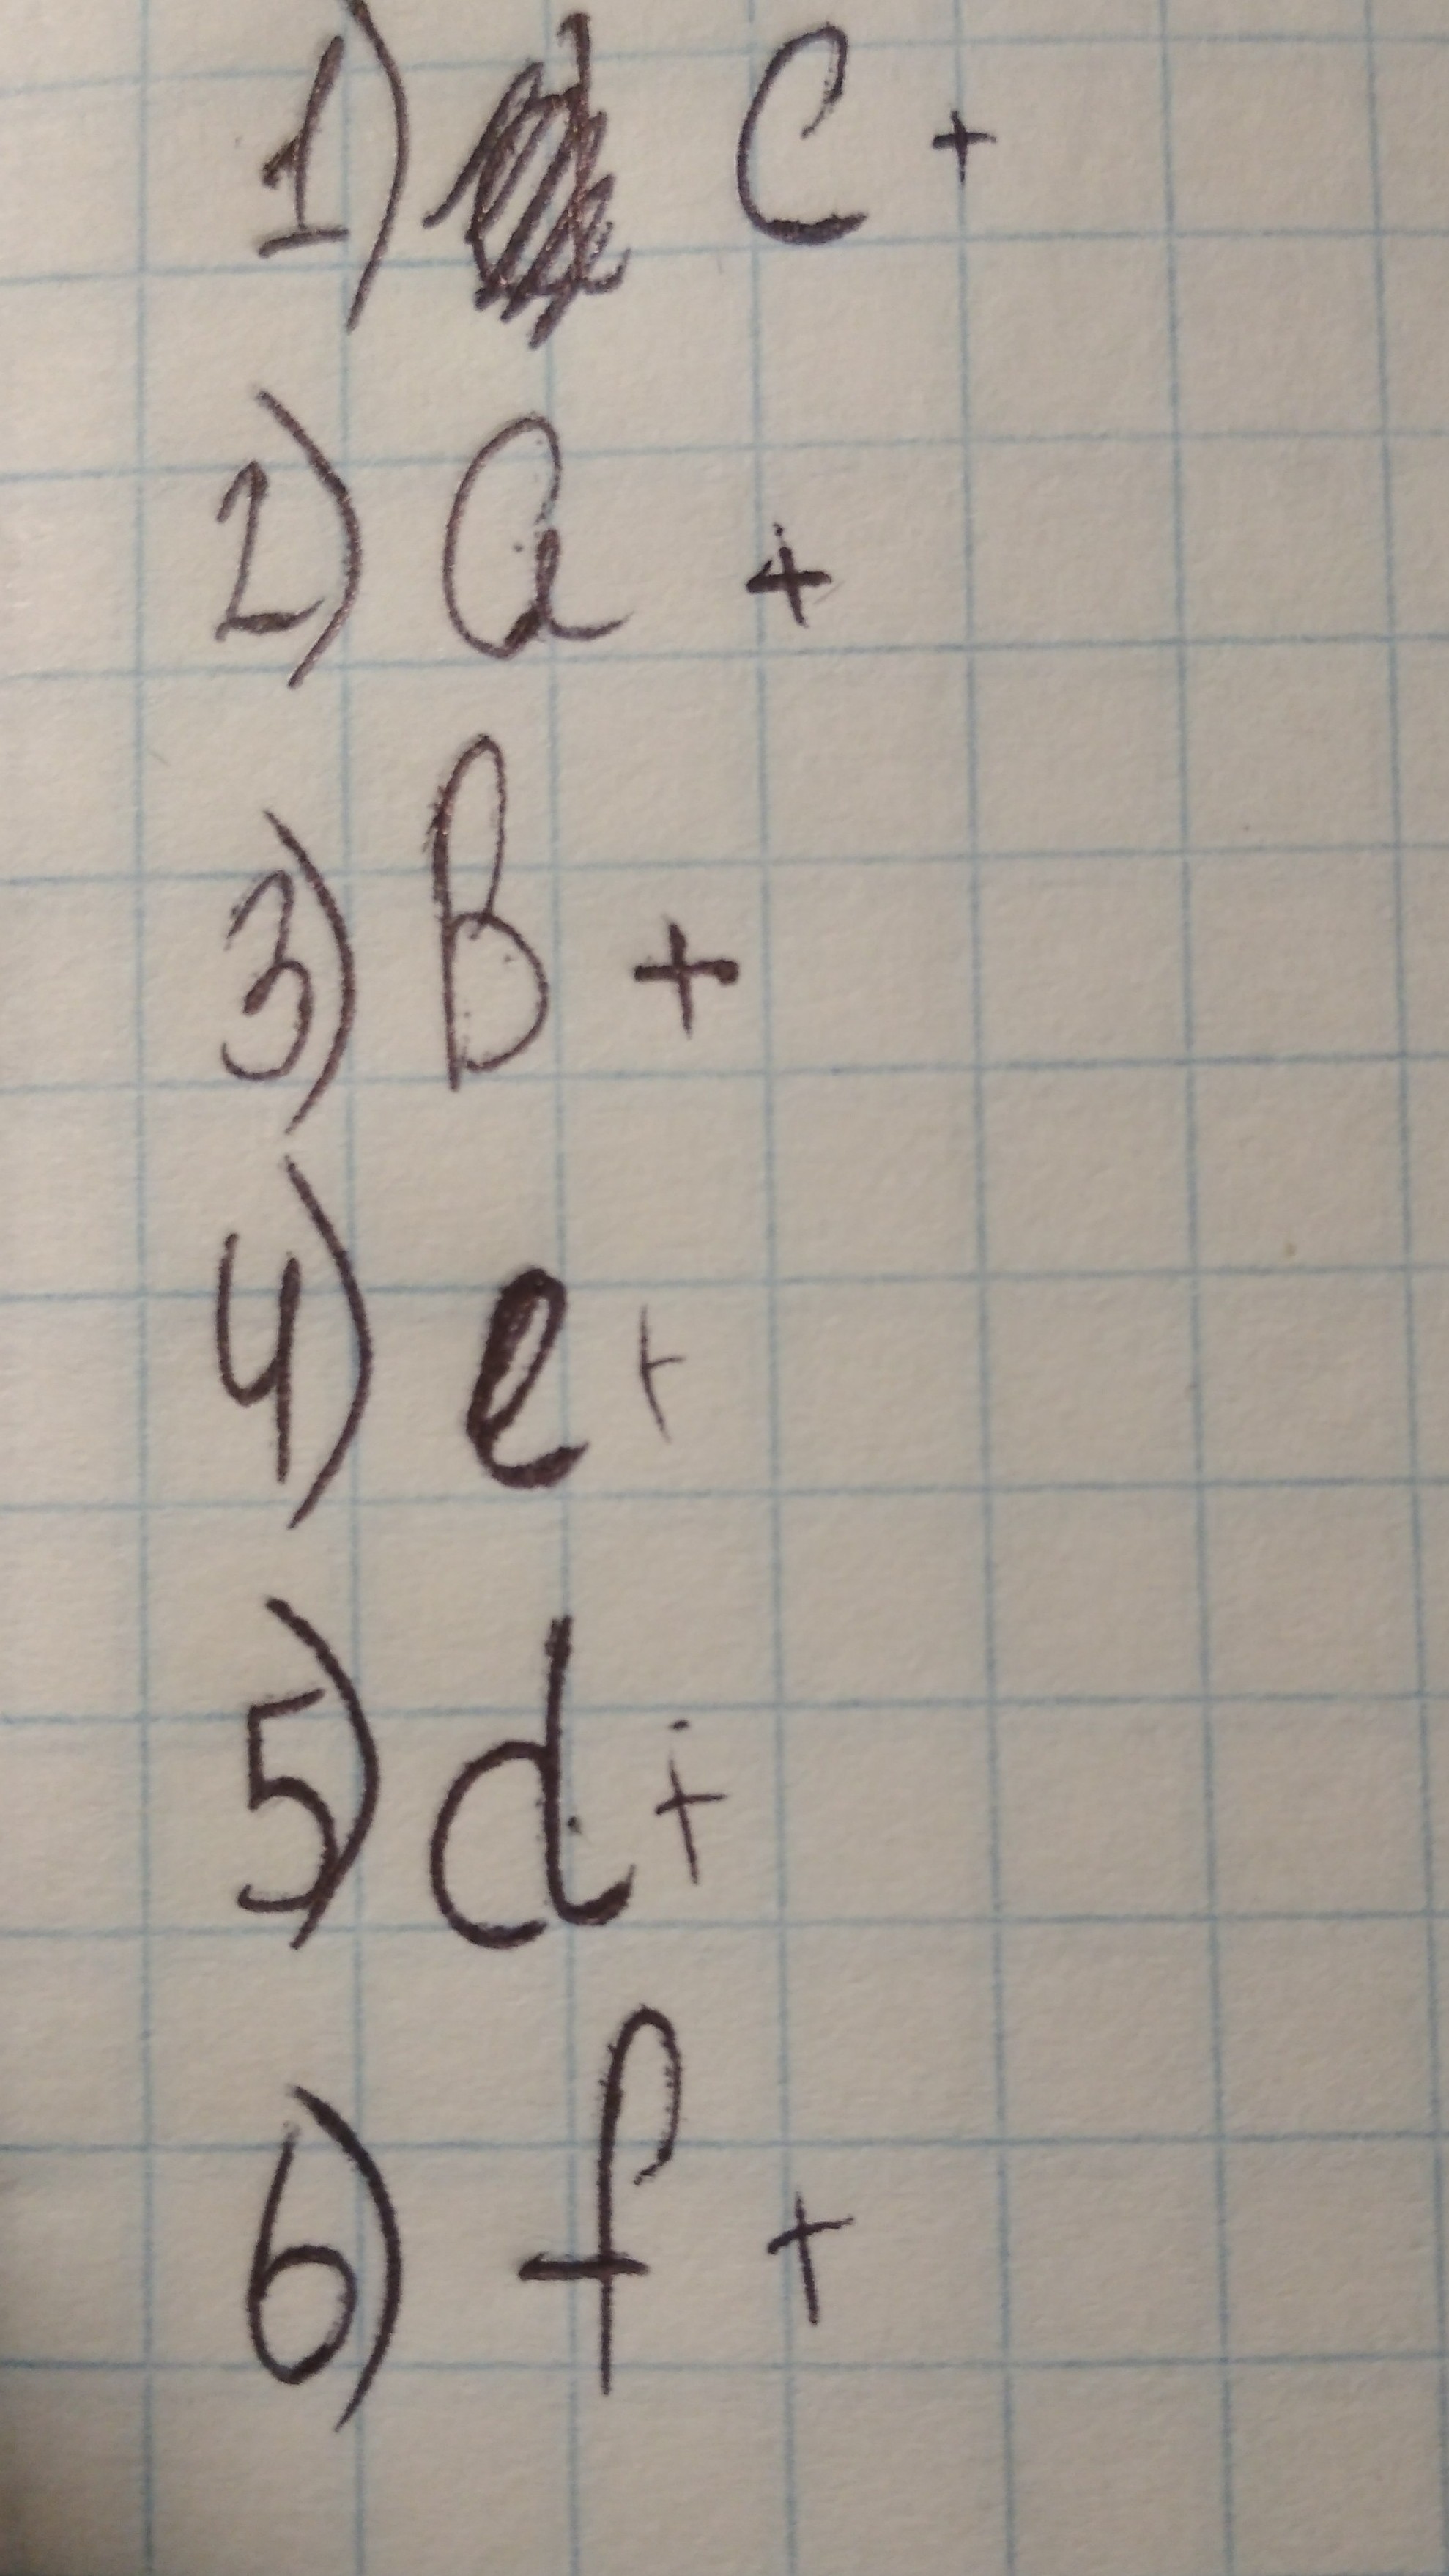 1) C +
2) a +
3) B +
4) e +
5) d +
6) f +